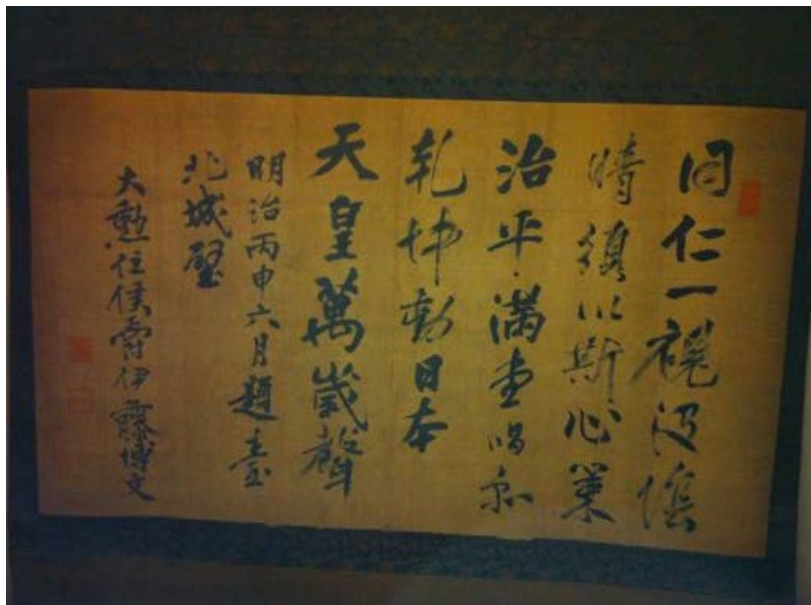 同仁一視没陰
晴須以斯心策
治平満堂唱和
乾坤動日本
天皇萬歲聲
明治丙申六月題臺
北城壁
大勲位侯爵伊藤博文